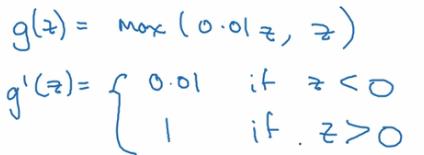 g(z) = max (0.01z, z)
g'(z) = { 0.01 if z < 0
1 if z > 0